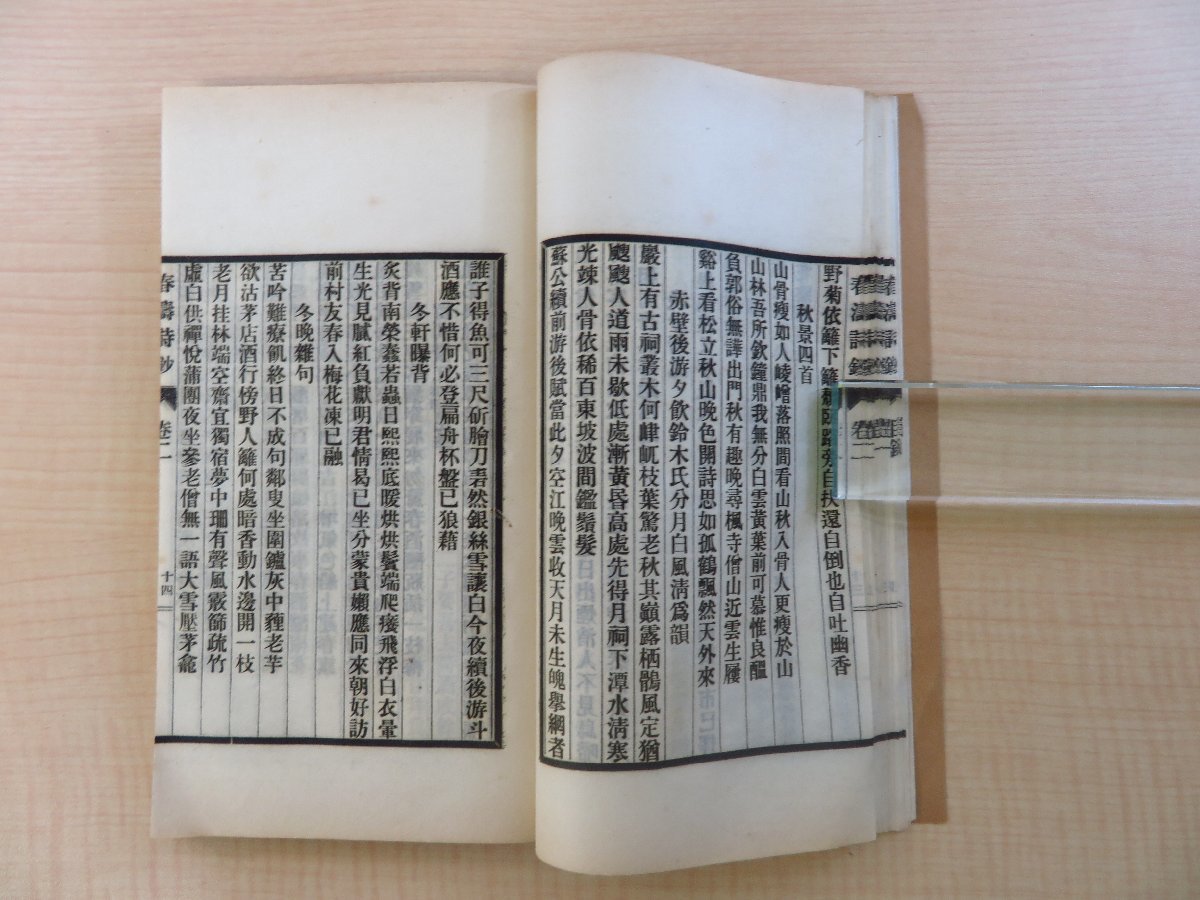 野菊依籬下籬 還自倒也自吐幽香
秋景四首
山骨瘦如人崚嶒落照間看山秋入骨人更瘦於山
山林吾所欽鐘鼎我無分白雲黃葉前可慕惟良醞
負郭俗無譁出門秋有趣晚尋楓寺僧山近雲生屨
谿上看松立秋山晚色開詩思如孤鶴飄然天外來
赤壁後游夕飮鈴木氏分月白風淸爲韻
巖上有古祠叢木何崥屼枝葉驚老秋其巔露栖鶻風定猶
颼颼人道雨未歇低處漸黃昏高處先得月祠下潭水淸寒
光竦人骨依稀百東坡波間鑑鬚髮
蘇公續前游後賦當此夕空江晚雲收天月未生魄擧網者
誰子得魚可三尺斫膾刀砉然銀絲雪讓白今夜續後游斗
酒應不惜何必登扁舟杯盤已狼藉
冬軒曝背
炙背南榮蠢若蟲日熙熙底暖烘烘鬢端爬癢飛浮白衣暈
生光見膩紅負獻明君情曷已坐分蒙貴嬾應同來朝好訪
前村友春入梅花凍已融
冬晚雜句
苦吟難療飢終日不成句鄰叟坐圍鑪灰中薶老芋
欲沽茅店酒行傍野人籬何處暗香動水邊開一枝
老月挂林端空齋宜獨宿夢中珊有聲風霰篩疏竹
虛白供禪悅蒲團夜坐參老僧無一語大雪壓茅龕
春濤詩鈔 卷二 十四